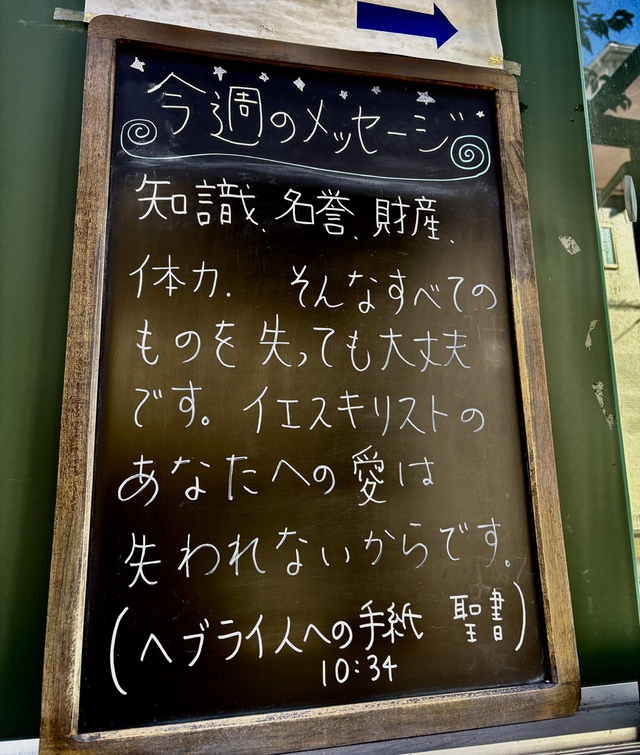 今週のメッセージ
知識、名誉、財産、
体力. そんなすべての
ものを失っても大丈夫
です。イエスキリストの
あなたへの愛は
失われないからです。
(ヘブライ人への手紙 聖書)
10:34